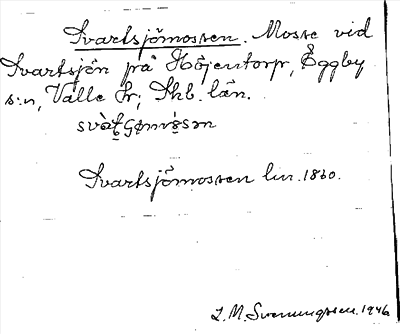 Svartsjömossen. Mosse vid
Svartsjön på Höjentorp, Eggby
s:n, Valle hr, Skb. län.
Svartsjömossen lm. 1860.
L. M. Svenungsson. 1946